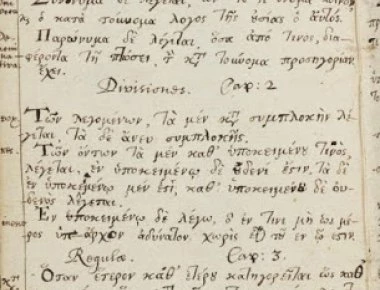 ὁ κατὰ τοὔνομα λόγος τῆς ὐσίας ὁ αὐτός.
Παρώνυμα δὲ λέγεται ὅσα ἀπό τινος, δια-
φέροντα τῇ πτώσει, τὴν κτ̀ τοὔνομα προσηγορίαν
ἔχει.
Divisiones. Cap: 2
Τῶν λεγομένων, τὰ μὲν κτ̀ συμπλοκὴν λέ-
γεται, τὰ δὲ ἄνευ συμπλοκῆς.
Τῶν ὄντων τὰ μὲν καθ' ὑποκειμένου τινὸς,
λέγεται, ἐν ὑποκειμένῳ δὲ ὐδενί ἐστιν. τὰ δὲ
ἐν ὑποκειμένῳ μέν ἐστι, καθ' ὑποκειμένου δὲ ὐ-
δενὸς λέγεται.
Ἐν ὑποκειμένῳ δὲ λέγω, ὃ ἔν τινι μὴ ὡς μέ-
ρος ὑπάρχον ἀδύνατον χωρὶς εἶναι τοῦ ἐν ᾧ ἐστιν.
Regulæ. Cap: 3.
Ὅταν ἕτερον καθ' ἑτέρου κατηγορεῖται ὡς καθ'